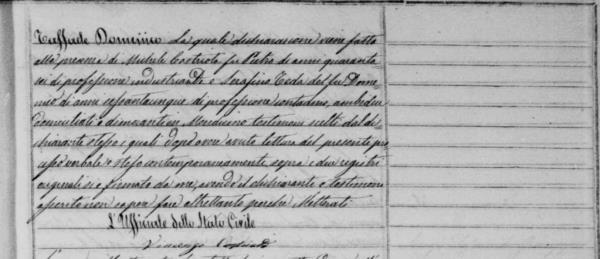 Raffaele Domenico La quale dichiarazione viene fatta
alla presenza di Michele Castriota fu Pietro di anni quaranta
sei di professione industriante e Serafino Tede del fu Dome
nico di anni sessantacinque di professione contadino, ambedue
domiciliati e dimoranti in testimoni scelti dal di
chiarante stesso, i quali dopo avere avuto lettura del presente pro
cesso verbale steso contemporaneamente sopra i due registri
originali si è firmato da me, avendo il dichiarante e testimoni
asserito non saper fare altrettanto perchè illetterati
L'Uffiziale dello Stato Civile
Vincenzo